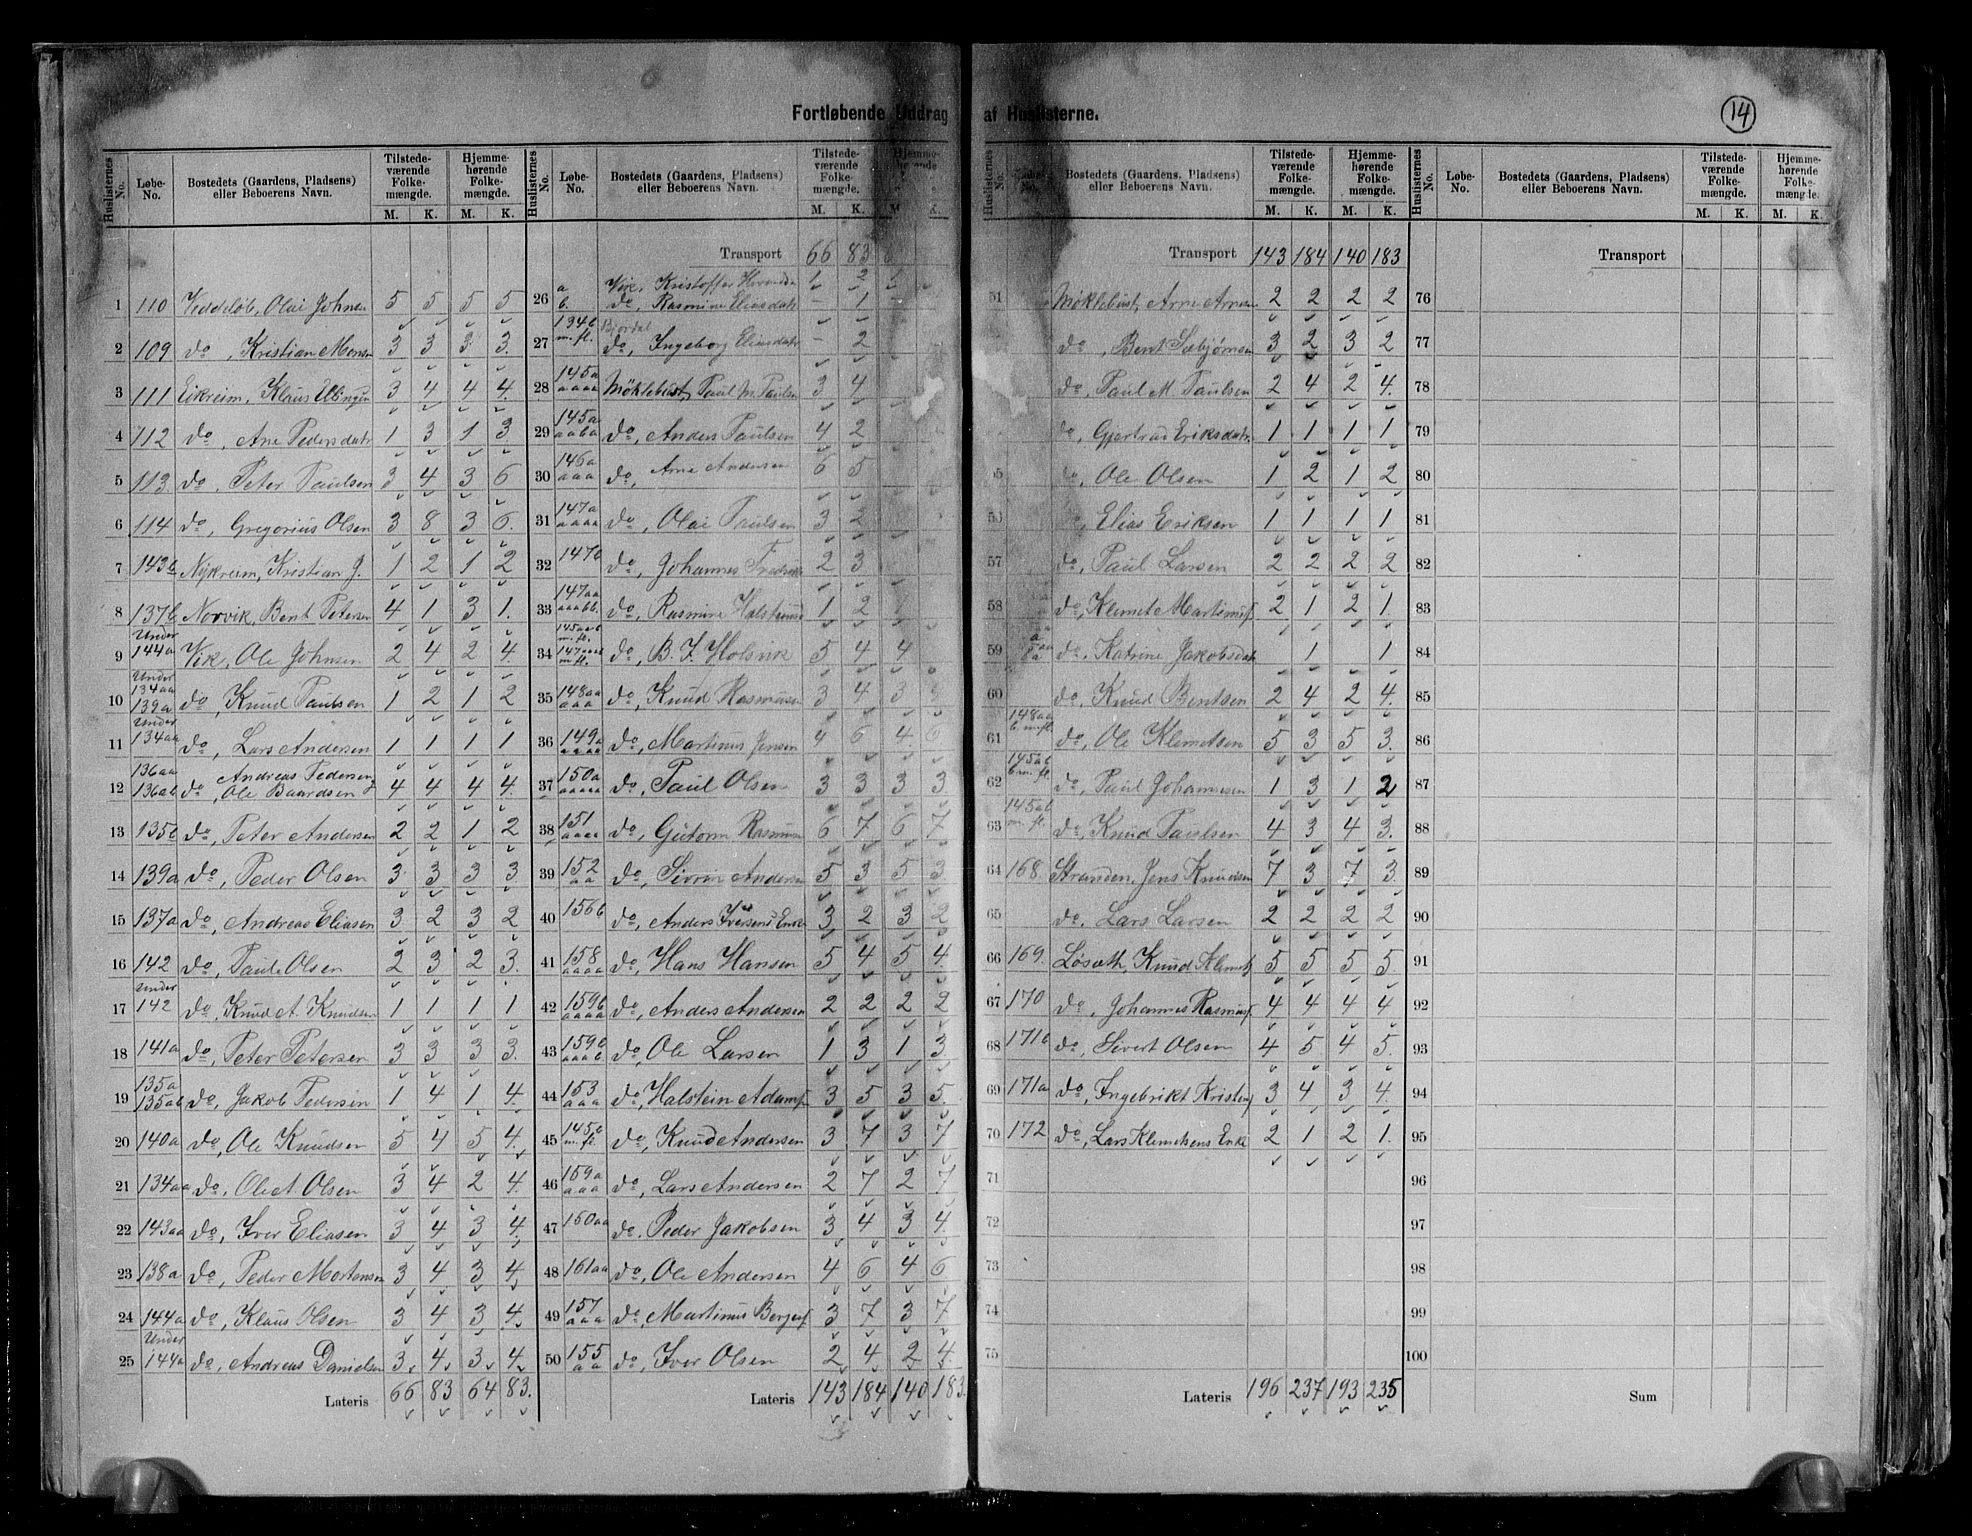 Fortløbende Uddrag af Huslisterne.
14
Huslisternes No. Løbe-No. Bostedets (Gaardens, Pladsens) eller Beboerens Navn. Tilstedeværende Folkemængde. M. K. Hjemmehørende Folkemængde. M. K.
1 110 Veddeløb, Olai Johnsen 5 5 5 5
2 109 do, Kristian Monsen 3 3 3 3.
3 111 Eikreim, Klaus Ellingsen 3 4 4 4.
4 112 do, Ane Pedersdatr 1 3 1 3
5 113 do, Peter Paulsen 3 4 3 6
6 114 do, Gregorius Olsen 3 8 3 6.
7 143b Nykreim, Kristian J. 1 2 1 2
8 137b Norvik, Bent Petersen 4 1 3 1.
9 Under 144a Vik, Ole Johnsen 2 4 2 4.
10 Under 134aa 139a do, Knud Paulsen 1 2 1 2
11 Under 134aa do, Lars Andersen 1 1 1 1
12 136aa 136ab do, Andreas Pedersen Ole Baardsen 4 4 4 4.
13 135b do, Peter Andersen 2 2 1 2
14 139a do, Peder Olsen 3 3 3 3
15 137a do, Andreas Eliasen 3 2 3 2
16 142 do, Paul Olsen 2 3 2 3.
17 Under 142 do, Knud A. Knudsen 1 1 1 1
18 141a do, Peter Petersen 3 3 3 3.
19 135a 135ab do, Jakob Pedersen 1 4 1 4.
20 140a do, Ole Knudsen 5 4 5 4.
21 134aa do, Ole A. Olsen 3 4 2 4.
22 143aa do, Iver Eliasen 3 4 3 4.
23 138a do, Peder Mortensen 3 4 3 4.
24 144a do, Klaus Olsen 3 4 3 4.
25 Under 144a do, Andreas Danielsen 3 4 3 4
Lateris 66 83 64 83.
Huslisternes No. Løbe-No. Bostedets (Gaardens, Pladsens) eller Beboerens Navn. Tilstedeværende Folkemængde. M. K. Hjemmehørende M. K.
Transport 66 83
26 a Vik, Kristoffer 2
b do, Rasmine Eliasdatr – 1
27 134b m.fl. Bjørdal do, Ingeborg Eliasdatr – 2
28 145a aaaa Møklebust, Paul M. Paulsen 3 4
29 145a aaba do, Anders Paulsen 4 2
30 146a aaa do, Arne Andersen 6 5
31 147a aaaa do, Olai Paulsen 3 2
32 147b do, Johannes 2 3
33 147aa aaabb. do, Rasmine 1 2
34 145aab m.fl. m.fl. do, B. J. Holsvik 5 4 4
35 148aa aaa do, Knud Rasmussen 3 4 3 3
36 149a aaaa do, Martinus Jensen 4 6 4 6
37 150a aaaaa do, Paul Olsen 3 3 3 3
38 151 aaaa do, Gutorm Rasmussen 6 7 6 7
39 152 aa do, Sivrin Andersen 5 3 5 3.
40 156b do, Anders Iversens Enke 3 2 3 2
41 158 aaaa do, Hans Hansen 5 4 5 4
42 159b aaaa do, Anders Andersen 2 2 2 2
43 159b aaab do, Ole Larsen 1 3 1 3
44 153 aaa do, Halstein Adamsen 3 5 3 5.
45 145b m.fl. do, Knud Andersen 3 7 3 7
46 159a aaa do, Lars Andersen 2 7 2 7
47 160aa do. Peder Jakobsen 3 4 3 4
48 161aa do, Ole Andersen 4 6 4 6
49 157 aaa do, Martinus 3 7 3 7
50 155 aa do, Iver Olsen 2 4 2 4.
Lateris 143 184 140 183.
Bostedets (Gaardens, Pladsens) eller Beboerens Navn. Tilstedeværende Folkemængde. M. K. Hjemmehørende Folkemængde. M. K.
Transport 143 184 140 183
51 Møklebust, Arne Arnesen 2 2 2 2
do, Bent Sæbjørnsen 3 2 3 2
do, Paul M. Paulsen 2 4 2 4.
do, Gjertrud Eriksdatr. 1 1 1 1
do, Ole Olsen 1 2 1 2
Elias Eriksen 1 1 1 1
57 do, Paul Larsen 2 2 2 2
58 do, Klemet Martinus 2 1 2 1.
59 do, Katrine Jakobsdatr 1 1
60 do, Knud Bentsen 2 4 2 4.
61 148aa b. m.fl. do, Ole Klemetsen 5 3 5 3.
62 145ab b m.fl. do, Paul Johannesen 1 3 1 2
63 145ab m.fl. do, Knud Paulsen 4 3 4 3.
64 168. Stranden, Jens Knudsen 7 3 7 3.
65 do. Lars Larsen 2 2 2 2
66 169. Løsæth, Knud Klemets 5 5 5 5.
67 170 do, Johannes Rasmus 4 4 4 4
68 171b do, Sivert Olsen 4 5 4 5.
69 171a do, Ingebrikt Kristens 3 4 3 4.
70 172 do, Lars Klemetsens Enke 2 1 2 1.
71
72
73
74
75
Lateris 196 237 193 235
Huslisternes No. Løbe-No. Bostedets (Gaardens, Pladsens) eller Beboerens Navn. Tilstedeværende Folkemængde. M. K. Hjemmehørende Folkemængde. M. K.
Transport
76
77
78
79
80
81
82
83
84
85
86
87
88
89
90
91
92
93
94
95
96
97
98
99
100
Sum